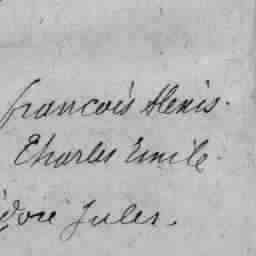 francois Alexis.
Charles Emile
Jules.